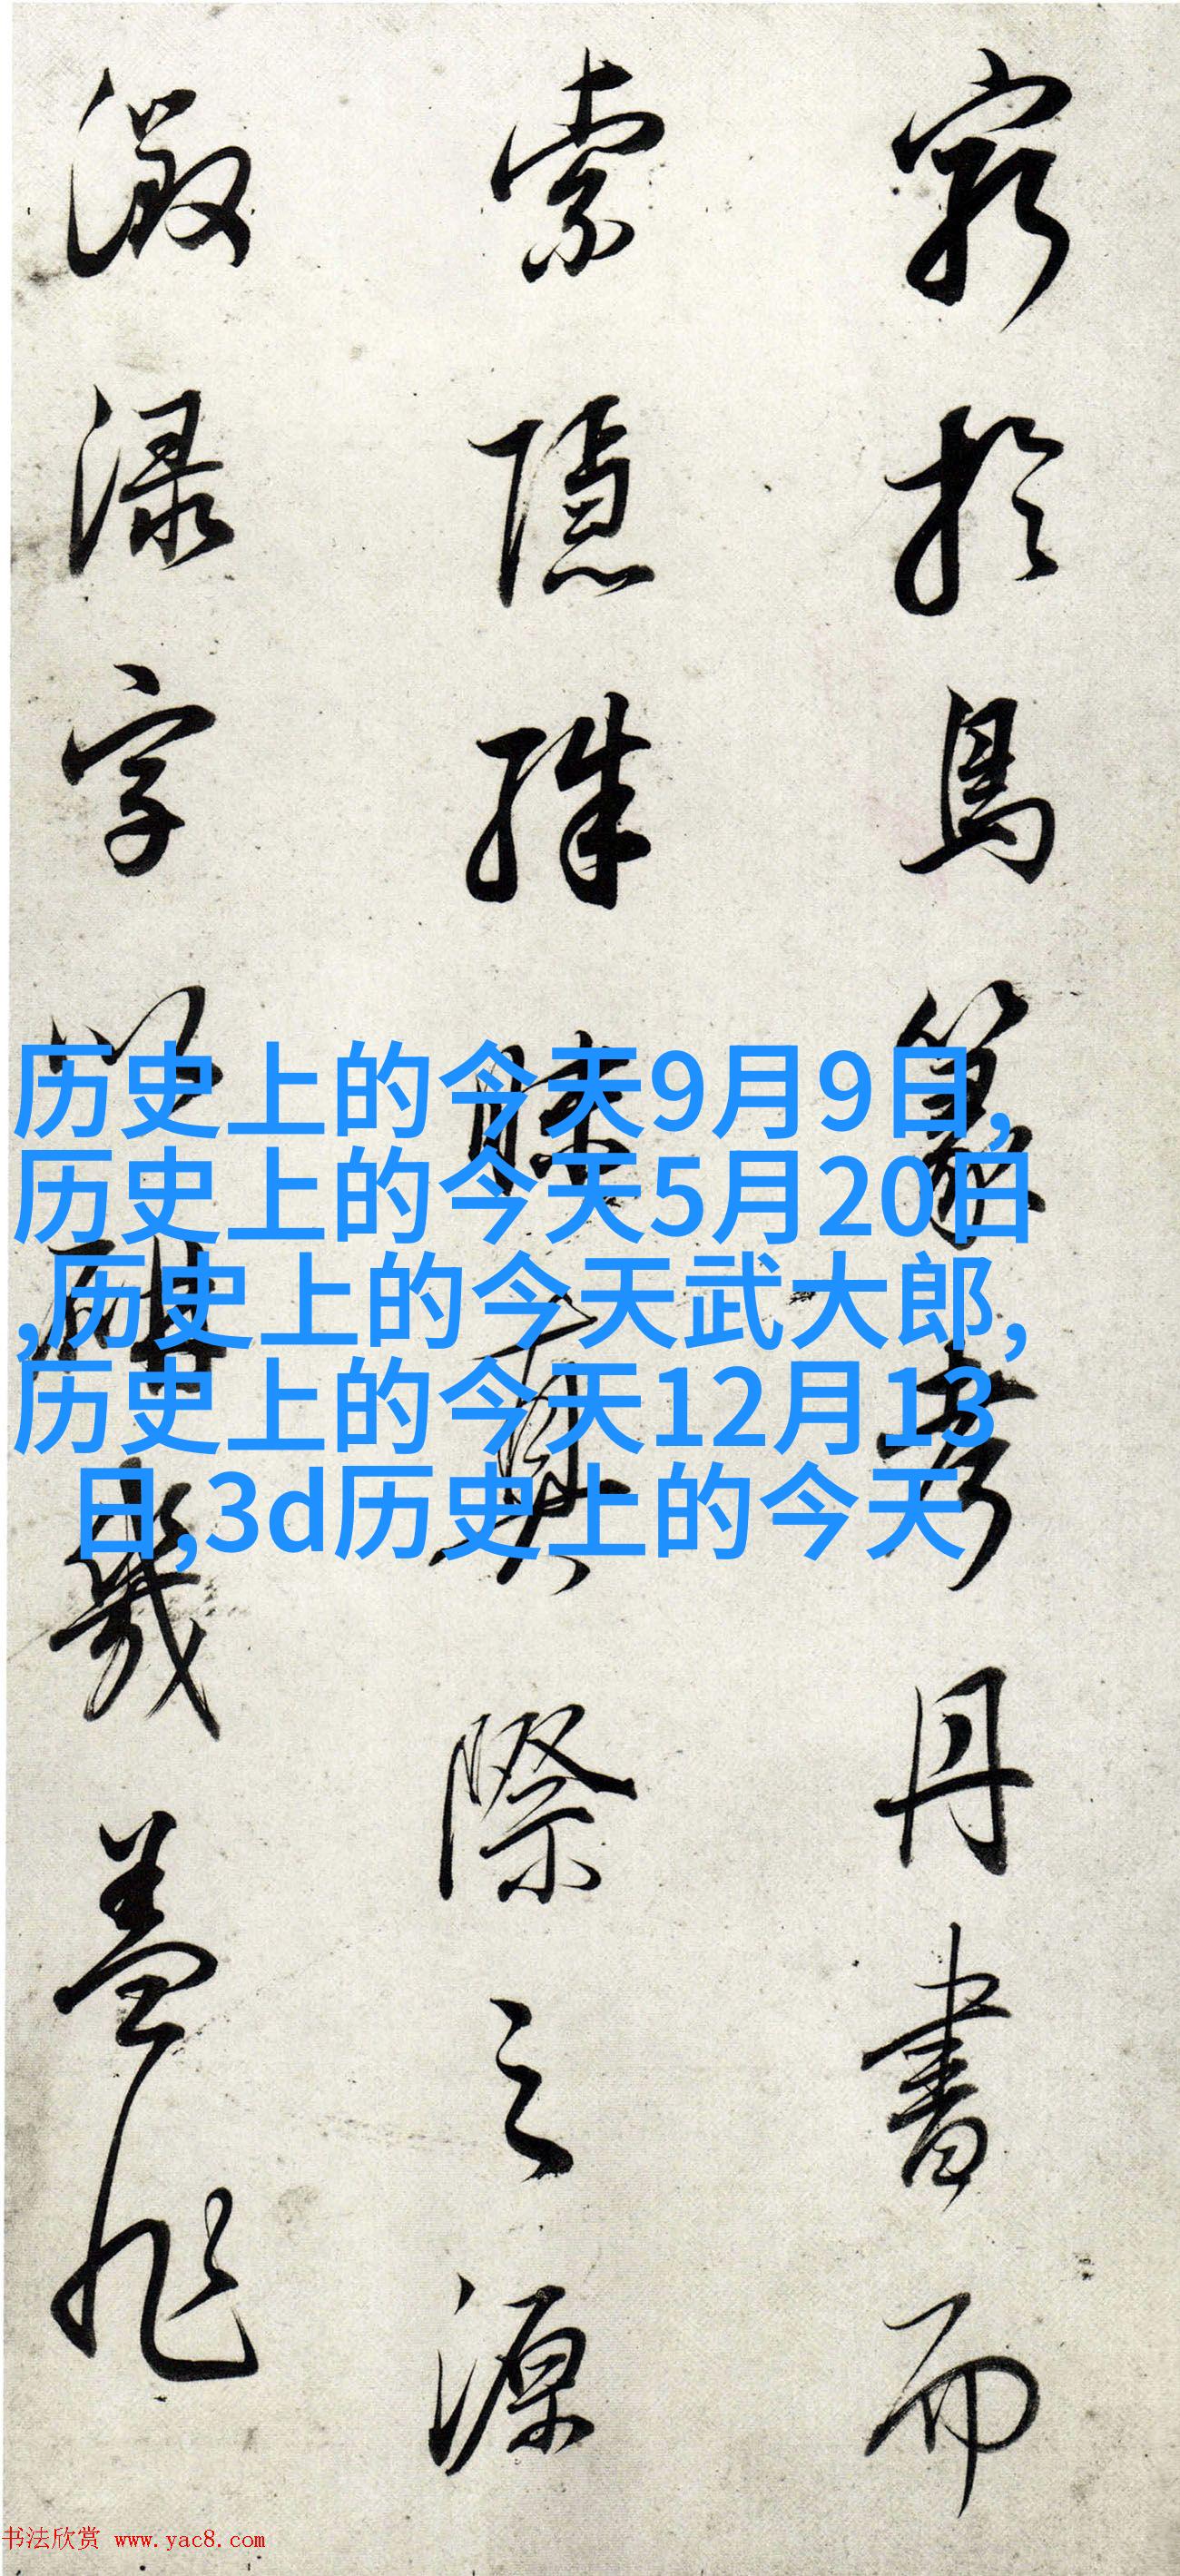 窮於鳥篆考丹書而
索隱殊昧真際之源
徵渌字以研幾盖非
历史上的今天9月9日,
历史上的今天5月20日
,历史上的今天武大郎,
历史上的今天12月13
日,3d历史上的今天
书法欣赏 www.yac8.com